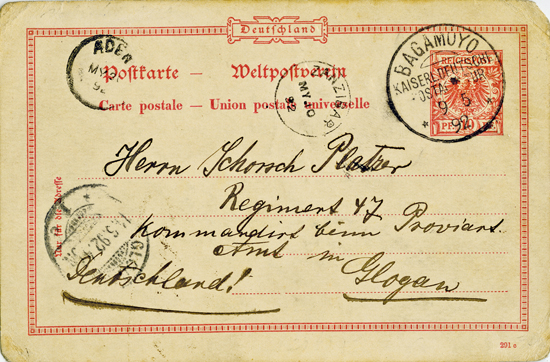 Deutschland
Postkarte — Weltpostverein
Carte postale — Union postale universelle
ADEN
MY
92
ZANZIBAR
MY 10
92
BAGAMOYO
KAISERL. DEUTSCHE
OSTAFRIKA
9 5
92
REICHSPOST
10 PFENNIG 10
Nur für die Adresse
5.92
Herrn Schorsch Platzer
Regiment 47
kommandirt beim Proviant-
Amt in
Deutschland! Glogau
291 e